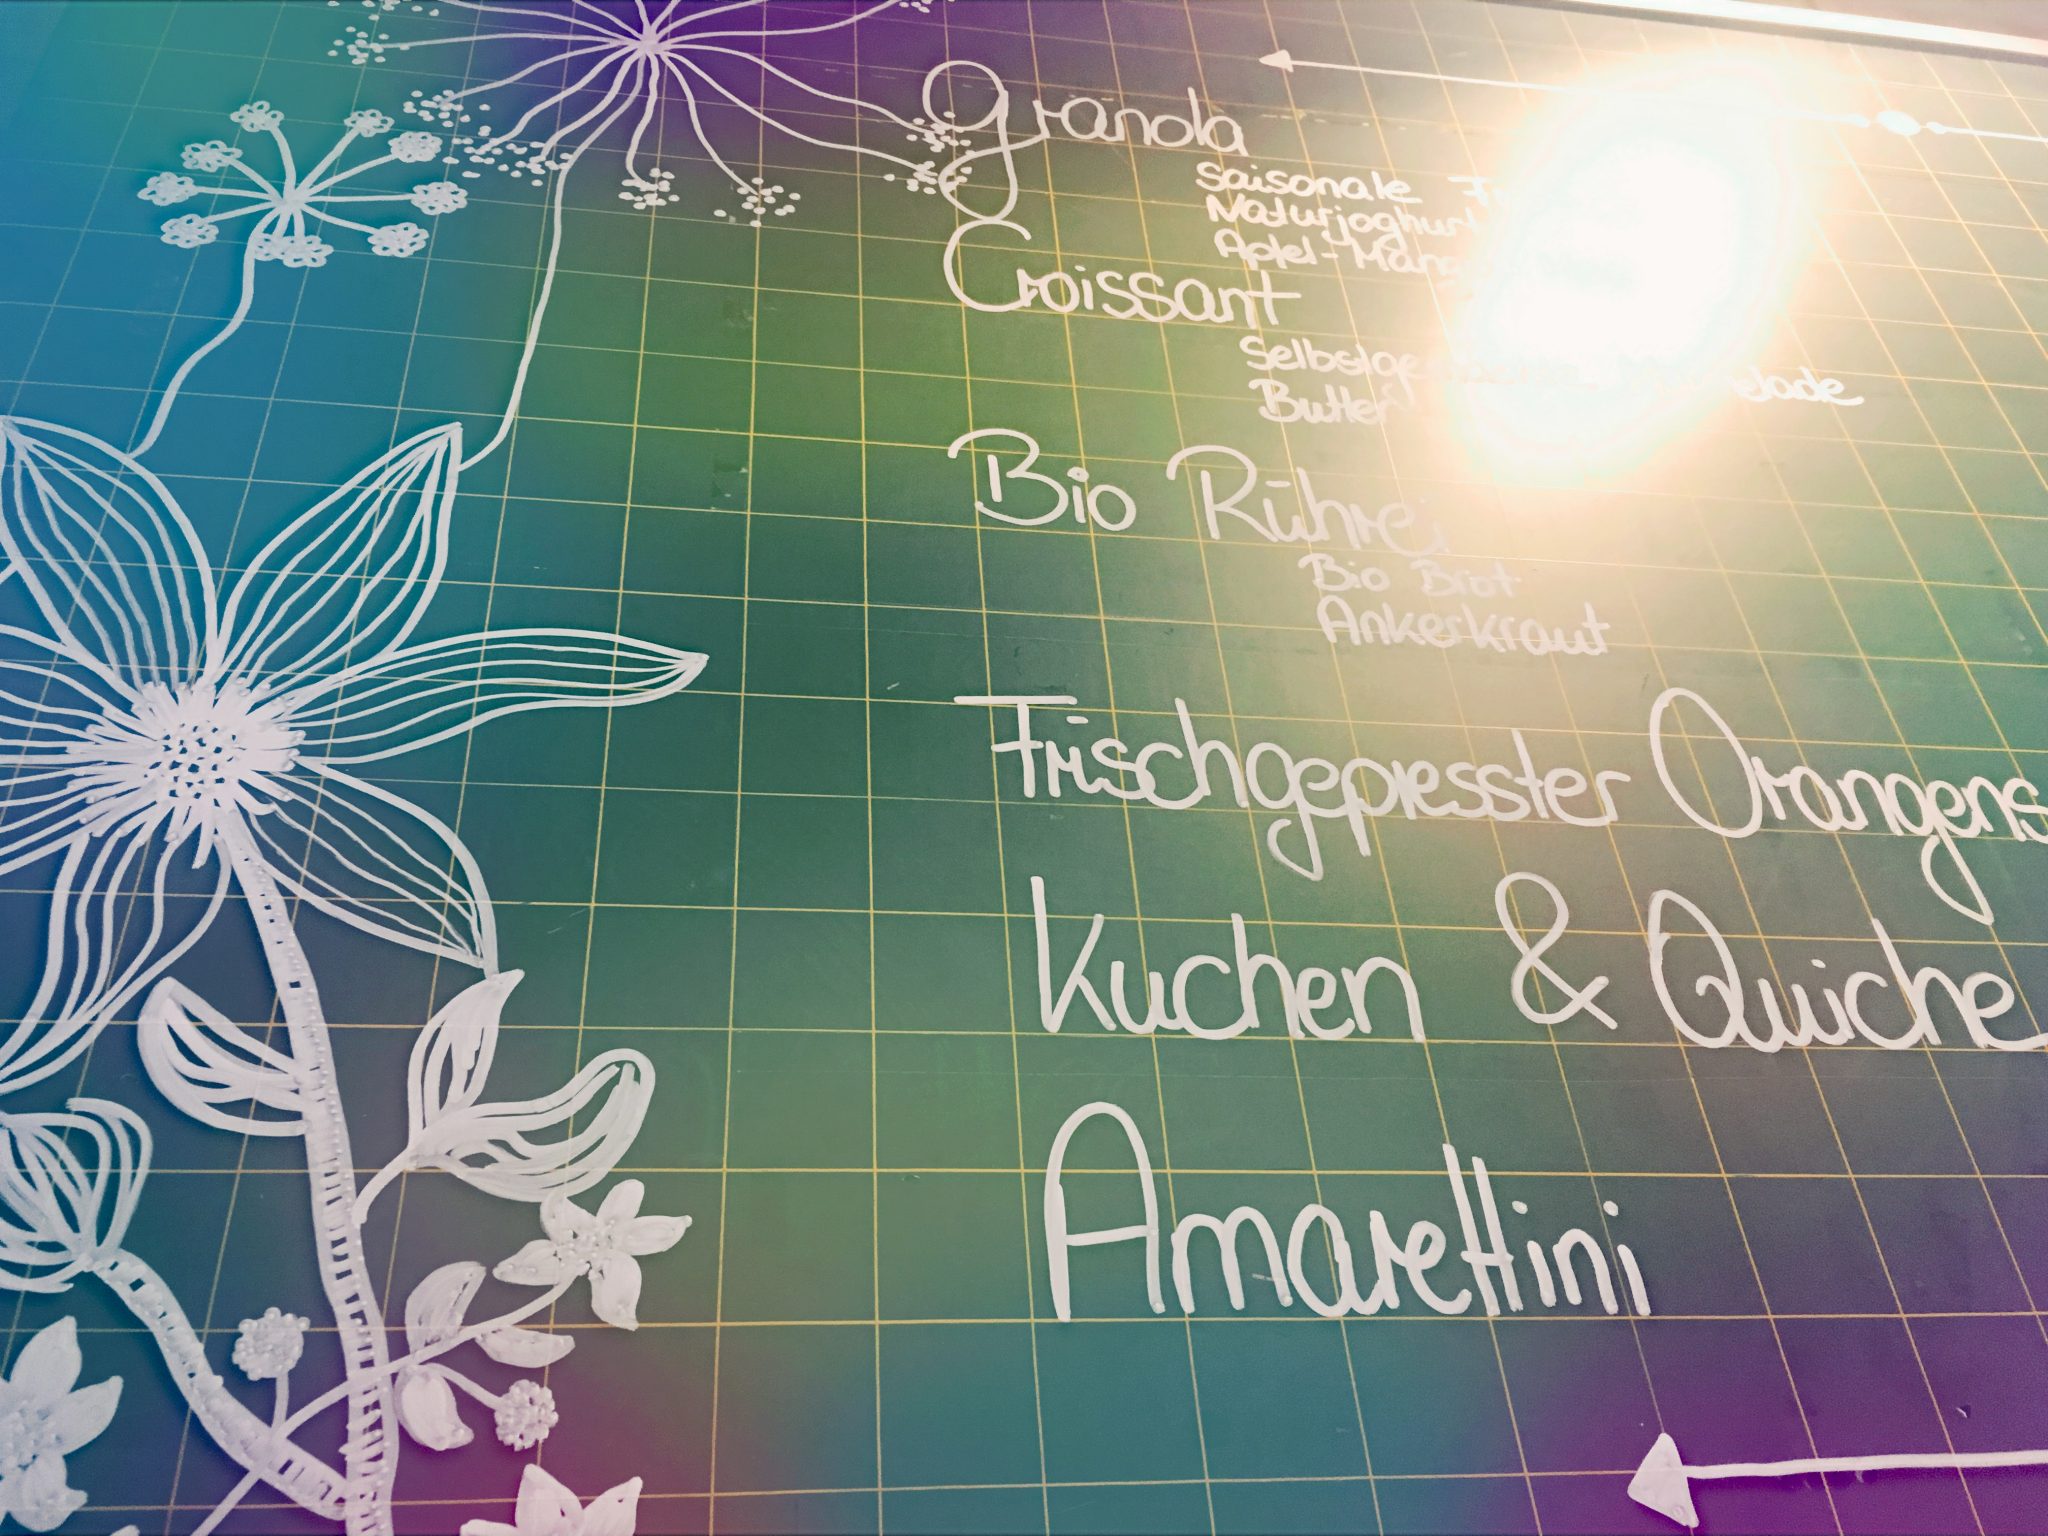 Granola
Saisonale
Naturjoghurt
Apfel-
Croissant
Butter
Bio Rührei
Bio Brot
Ankerkraut
Frischgepresster
Kuchen & Quiche
Amarettini